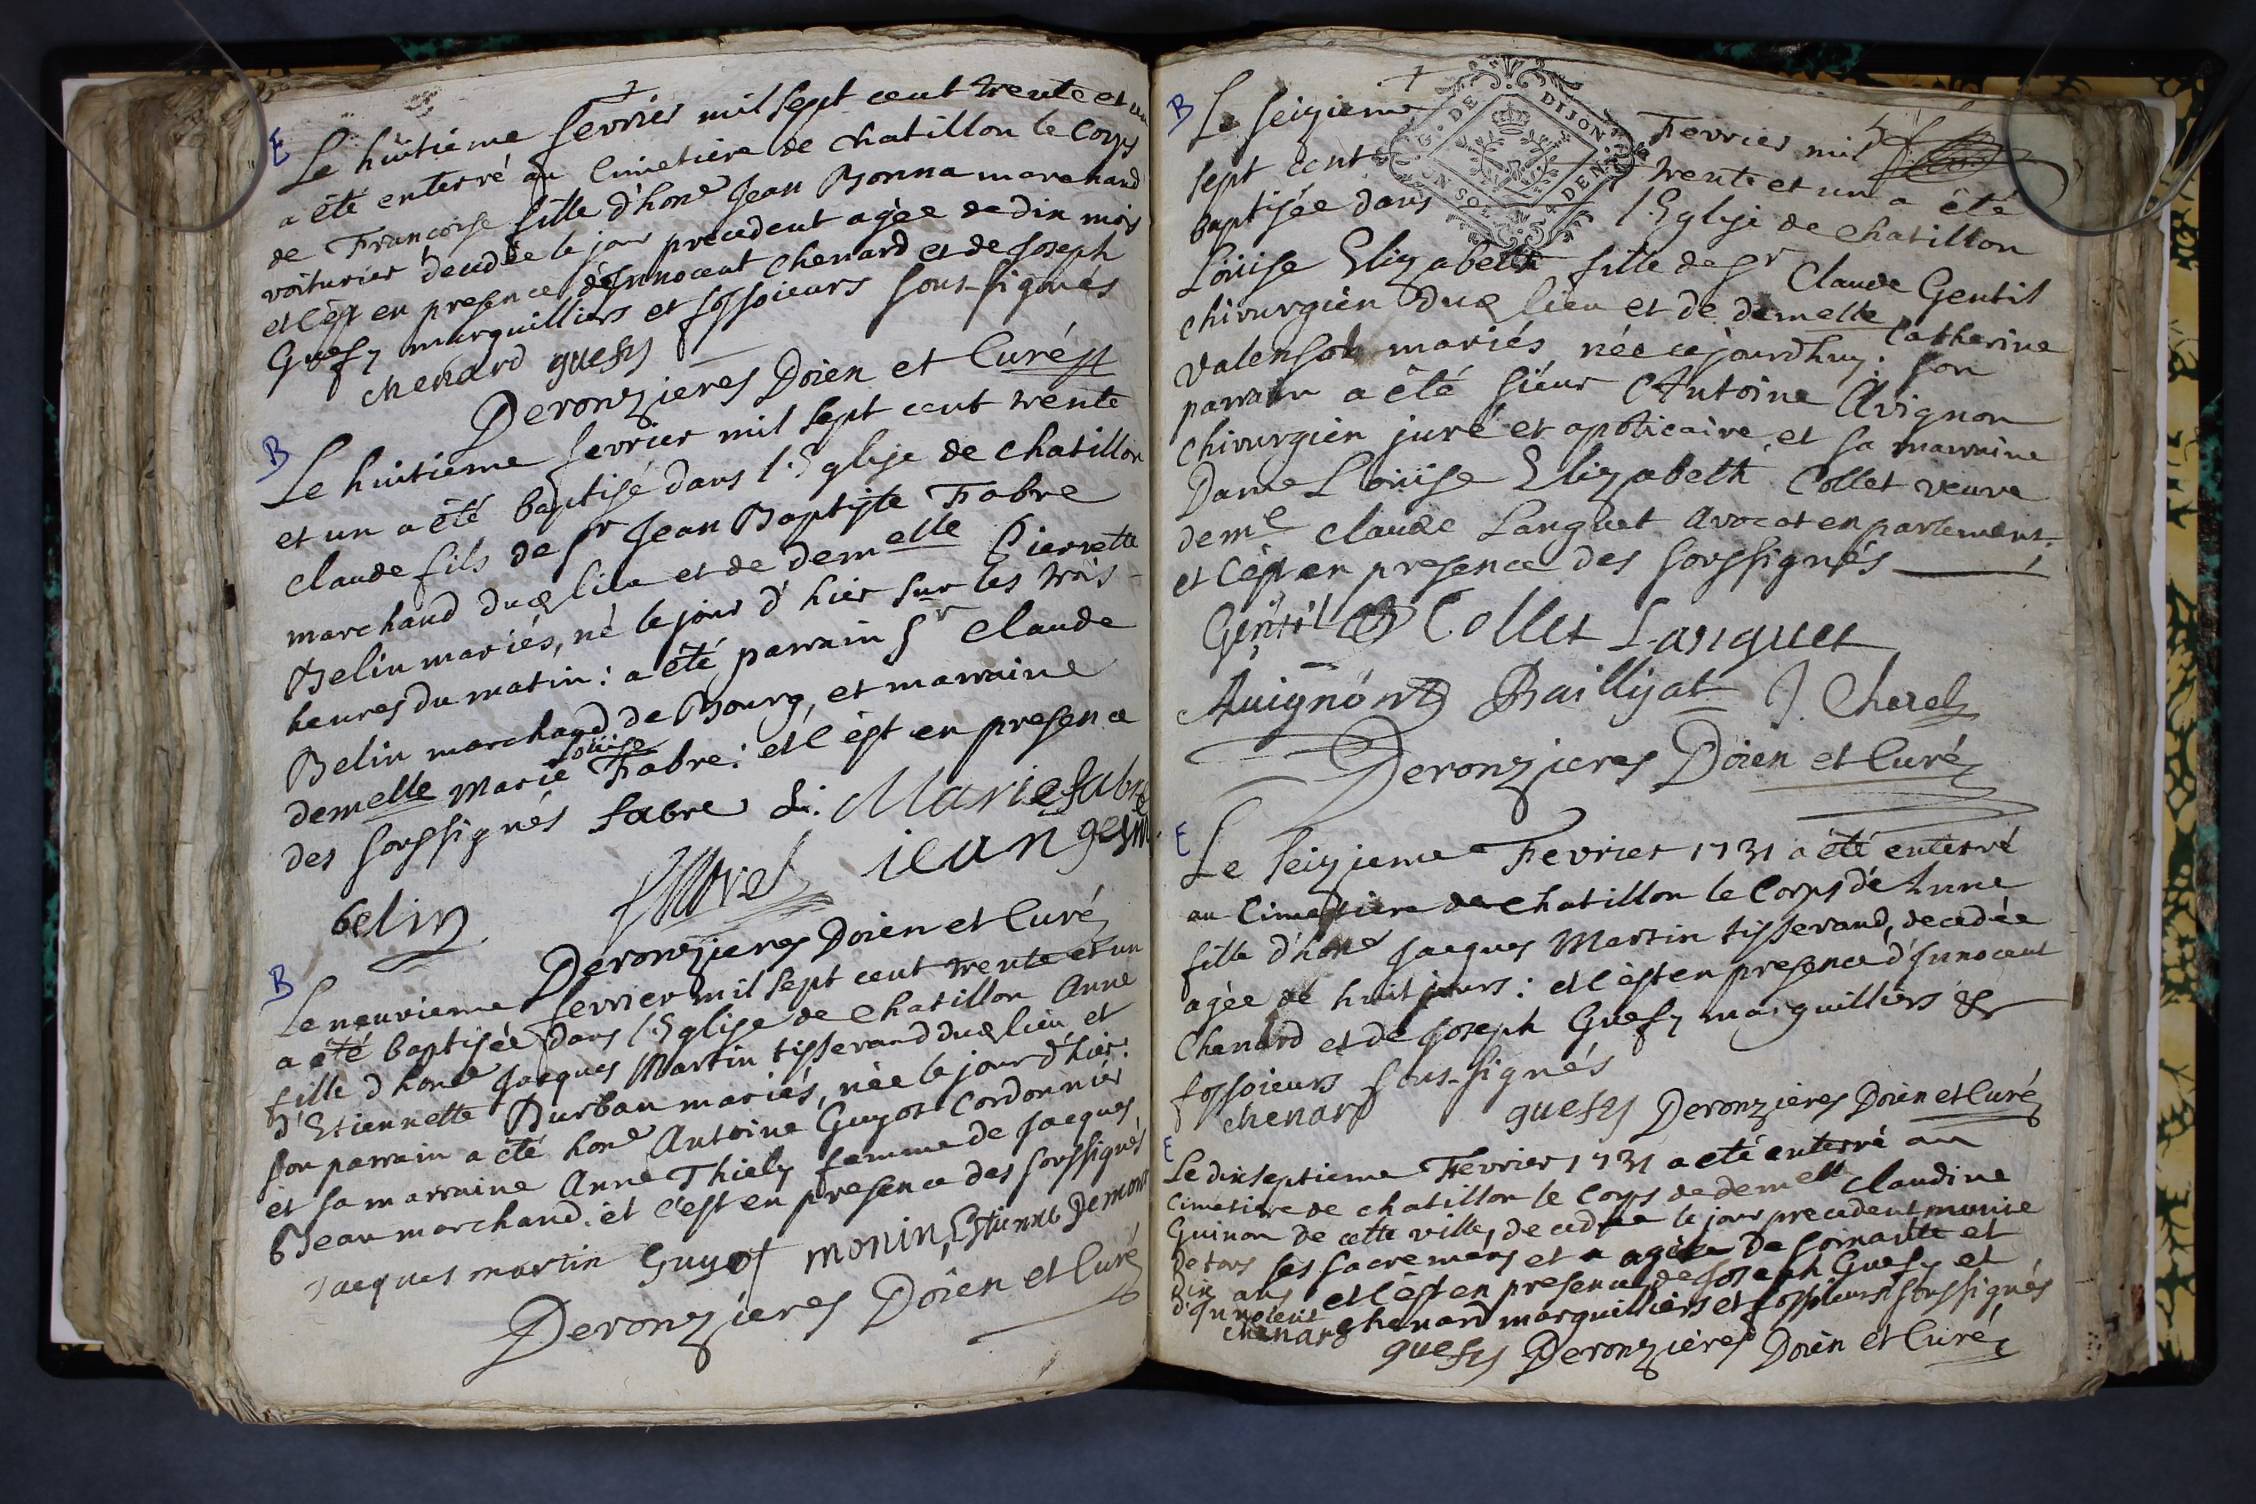 E
Le huitiéme fevrier mil sept cent trente et un
a été enterré au Cimetiere de Chatillon le Corps
de Francoise fille d'hone Jean Bonna marchand
voiturier decedée le jour precedent agée de dix mois
et c'est en presence d'Innocent Chenard et de Joseph
Guefy marguilliers et fossoieurs sous-signés
chenard guefy
Deronzieres Doien et Curé
B
Le huitieme fevrier mil sept cent trente
et un a été baptisé dans l'Eglise de chatillon
claude fils de Sr Jean Baptiste Fabre
marchand duq lieu et de demelle Pierrette
Belin mariés, né le jour d'hier sur les trois
heures du matin: a été parrain Sr Claude
Belin marchand de Bourg, et marraine
demelle Marie Loüise Fabre: et c'est en presence
des soussignés fabre Marie fabre
belin jean
Deronzieres Doien et Curé
B
Le neuvieme fevrier mil sept cent trente et un
a été baptisée dans l'Eglise de Chatillon Anne
fille d'hone Jacques Martin tisserand duq lieu et
d'Etiennette Durban mariés, née le jour d'hier.
son parrain a été hone Antoine Guyot Cordonnier
et sa marraine Anne Thiely femme de Jacques
Beau marchand. et c'est en presence des soussignés
Jacques martin Guyot monin, Estienne Demont
Deronzieres Doien et Curé
B
Le seizieme Fevrier mil
sept cent trente et un a été
baptisée dans l'Eglise de Chatillon
Loüise Elizabeth fille de Sr Claude Gentil
chirurgien duq lieu et de demelle Catherine
valensot mariés née cejourdhuy: son
parrain a été sieur Antoine Avignon
chirurgien juré et apoticaire et sa marraine
Dame Loüise Elizabeth Collet veuve
de me claude Languet Avocat en parlement.
et c'est en presence des soussignés
Gentil Collet Languet
Auignon Baillyat J. Cherel
Deronzieres Doien et Curé
G. DE DIJON.
UN SOL 4 DEN.
E
Le seizieme Fevrier 1731 a été enterré
au Cimetiere de Chatillon le Corps de Anne
fille d'hone Jacques Martin tisserand, decedée
agée de huit jours: et c'est en presence d'Innocent
Chenard et de Joseph Guefy marguilliers &
fossoieurs sous-signés
chenard guefy Deronzieres Doien et Curé
E
Le dixseptieme Fevrier 1731 a eté enterré au
cimetiere de chatillon le Corps de demelle Claudine
Guinon de cette ville, decedée le jour precedent munie
de tous ses sacremens et agée de soixante et
dix ans et c'est en presence de Joseph Guefy et
d'Innocent chenard marguilliers et fossoieurs soussignés
chenard
guefy Deronzieres Doien et Curé